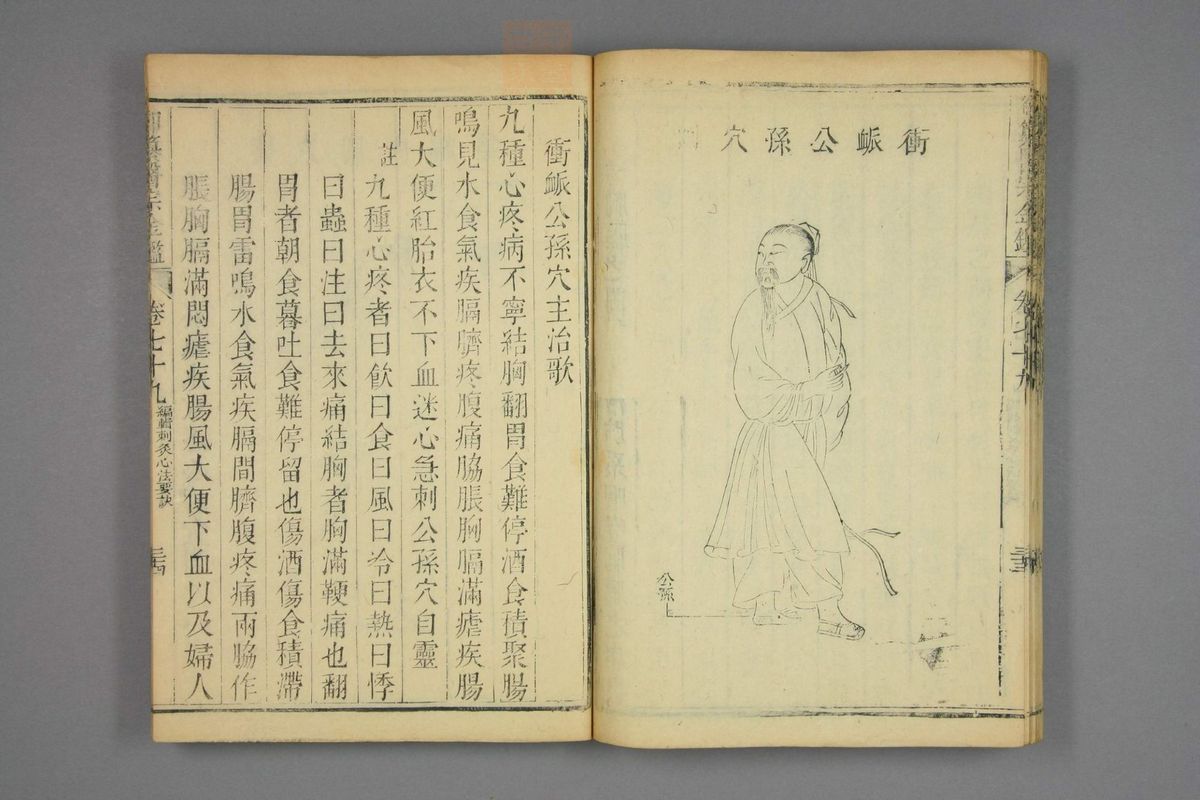 衝䘑公孫穴
公孫
御纂醫宗金鑑
卷七十九
編輯刺灸心法要訣
衝䘑公孫穴主治歌
九種心疼病不寧結胸翻胃食難停酒食積聚腸
鳴見水食氣疾膈臍疼腹痛脇脹胸膈滿瘧疾腸
風大便紅胎衣不下血迷心急刺公孫穴自靈
註九種心疼者曰飲曰食曰風曰冷曰熱曰悸
曰蟲曰注曰去來痛結胸者胸滿鞕痛也翻
胃者朝食暮吐食難停留也傷酒傷食積滯
腸胃雷鳴水食氣疾膈間臍腹疼痛兩脇作
脹胸膈滿悶瘧疾腸風大便下血以及婦人